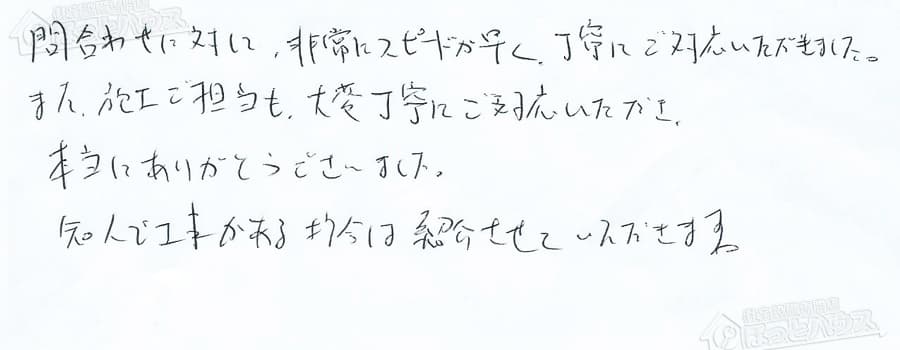 問合わせに対して、非常にスピードが早く、丁寧にご対応いただきました。
また、施工ご担当も、大変丁寧にご対応いただき、
本当にありがとうございました。
知人で工事がある場合は紹介させていただきます。
ほっとハウス